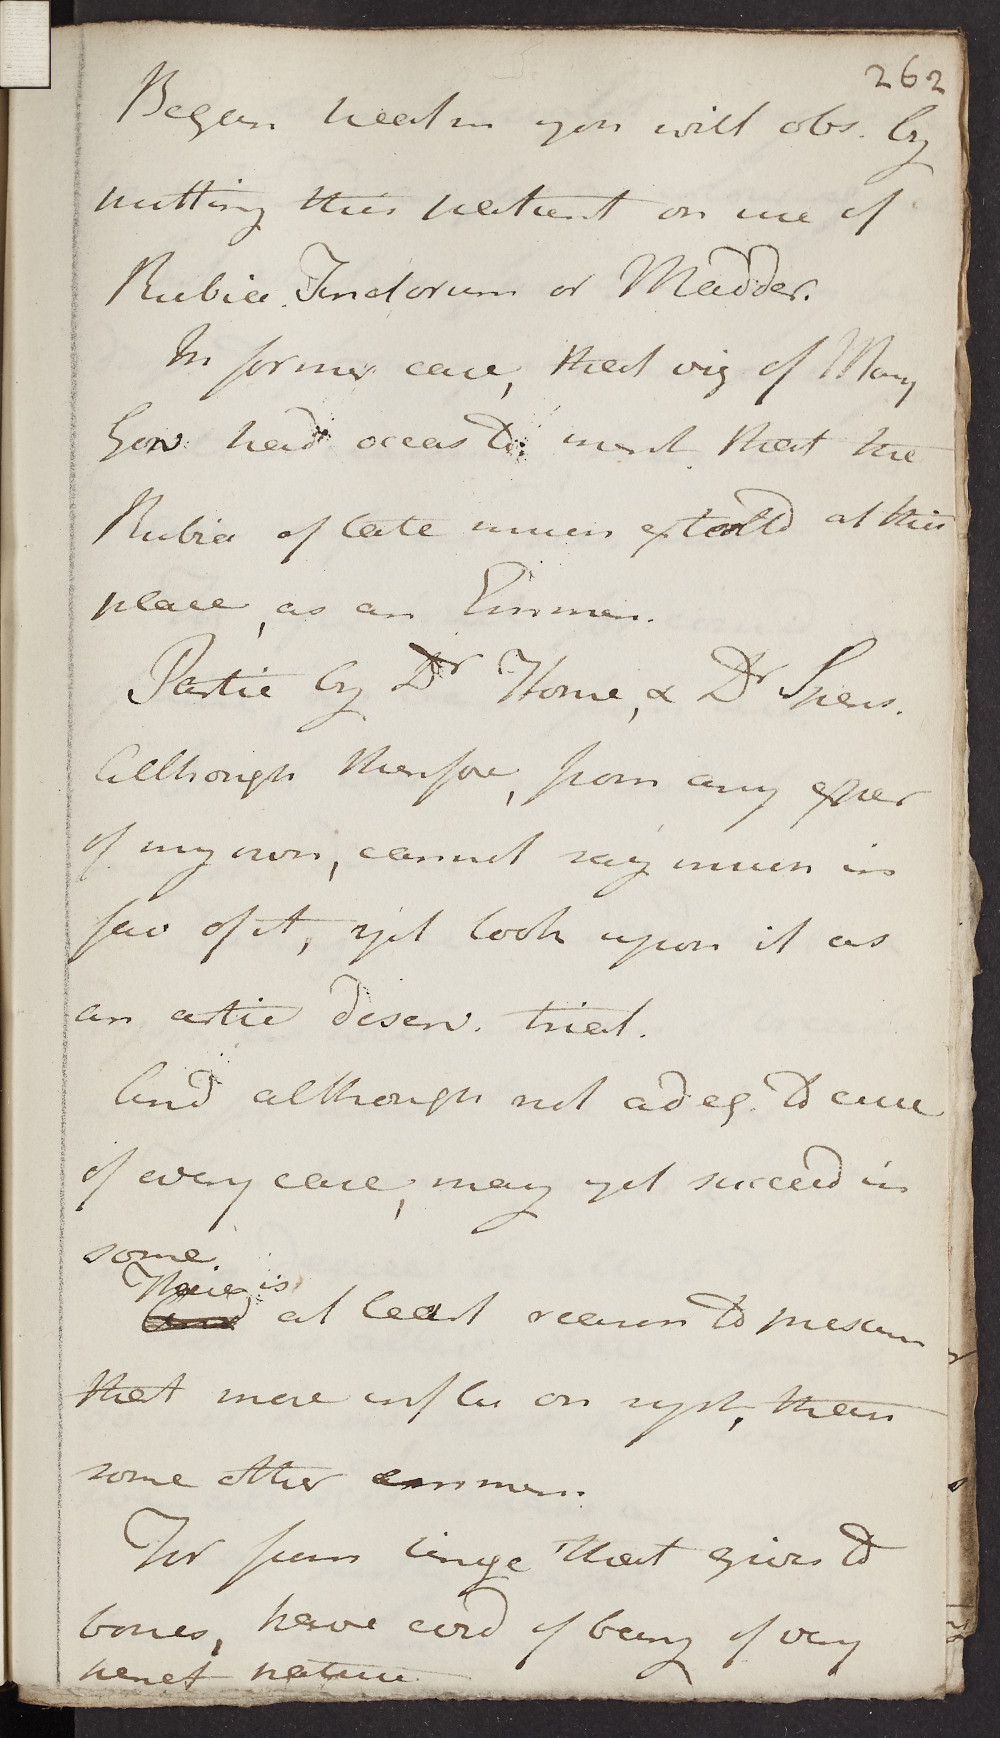 262
Began treatm you will obs. by
putting this patient on use of
Rubia Tinctorum or Madder.
In former case, that viz of Mary
Gow had occas to ment that the
Rubia of late much extolld at this
place, as an Emmen.
Partic by Dr Home, & Dr Spens.
Although therefore, from any exper
of my own, cannot say much in
fav of it, yet look upon it as
an artic deserv. trial.
And although not adeq. to cure
of every case, may yet succeed in
some
There is
at least reason to presum
that more influ on syst, than
some other emmen.
For from tinge that gives to
bones, have evid of being of very
penet nature